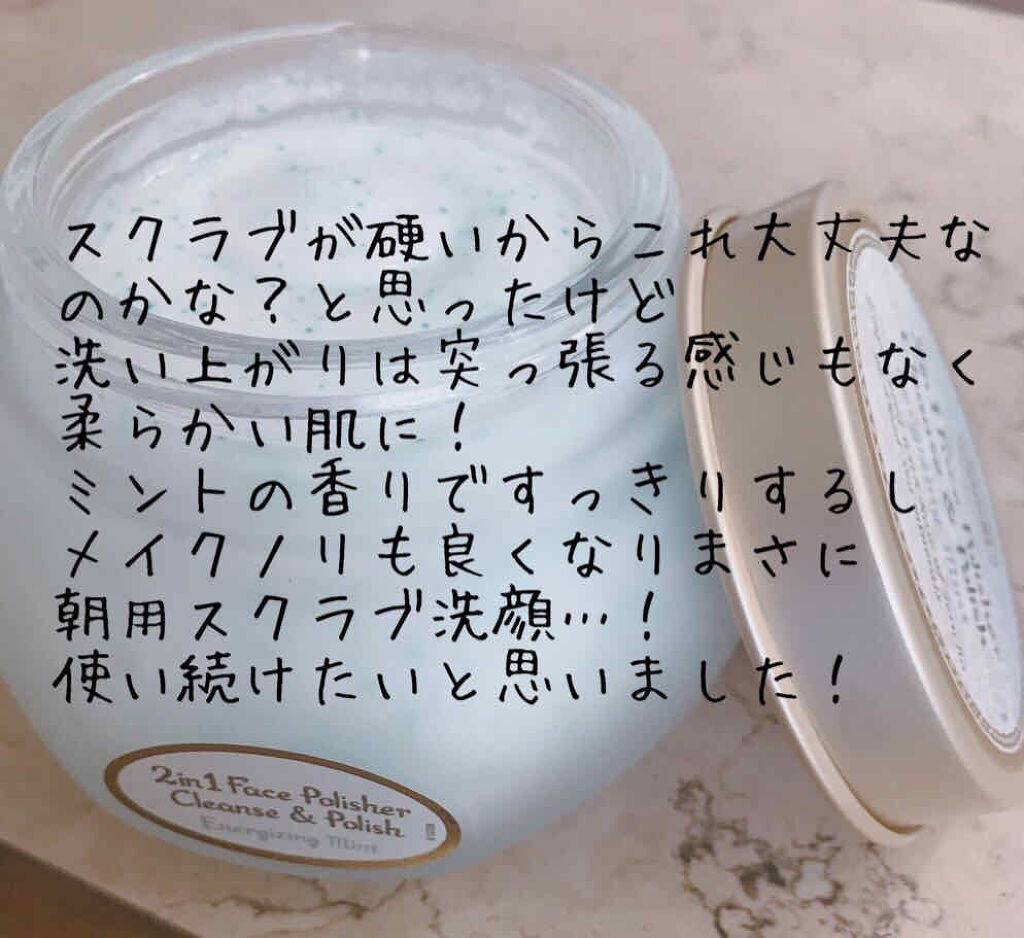 スクラブが硬いからこれ大丈夫な
のかな？と思ったけど
洗い上がりは突っ張る感じもなく
柔らかい肌に！
ミントの香りですっきりするし
メイクノリも良くなりまさに
朝用スクラブ洗顔…！
使い続けたいと思いました！
2in1 Face Polisher
Cleanse & Polish
Energizing Mint